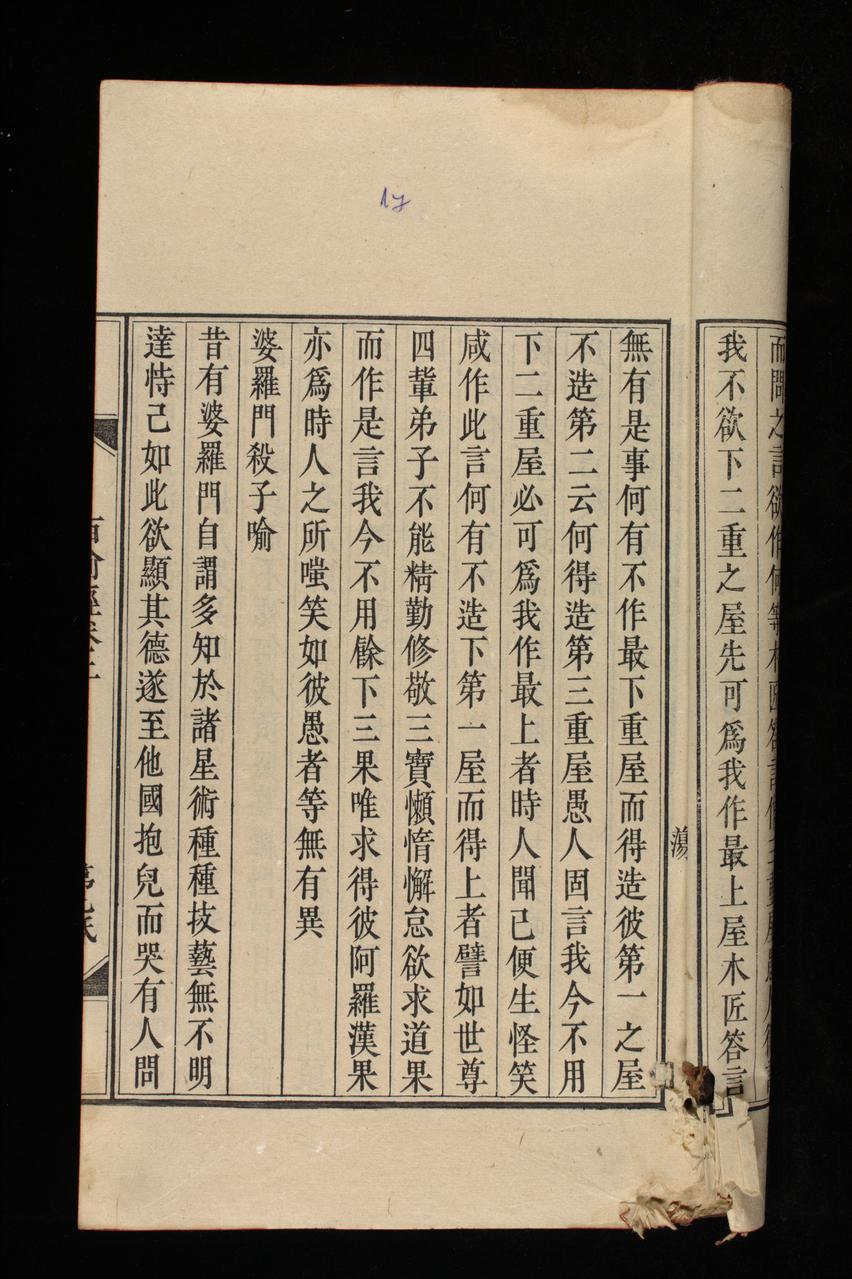 17
而問之言欲作何等木匠答
我不欲下二重之屋先可爲我作最上屋木匠答言
無有是事何有不作最下重屋而得造彼第一之屋
不造第二云何得造第三重屋愚人固言我今不用
下二重屋必可爲我作最上者時人聞已便生怪笑
咸作此言何有不造下第一屋而得上者譬如世尊
四輩弟子不能精勤修敬三寶懶惰懈怠欲求道果
而作是言我今不用餘下三果唯求得彼阿羅漢果
亦爲時人之所嗤笑如彼愚者等無有異
婆羅門殺子喻
昔有婆羅門自謂多知於諸星術種種技藝無不明
達恃己如此欲顯其德遂至他國抱兒而哭有人問